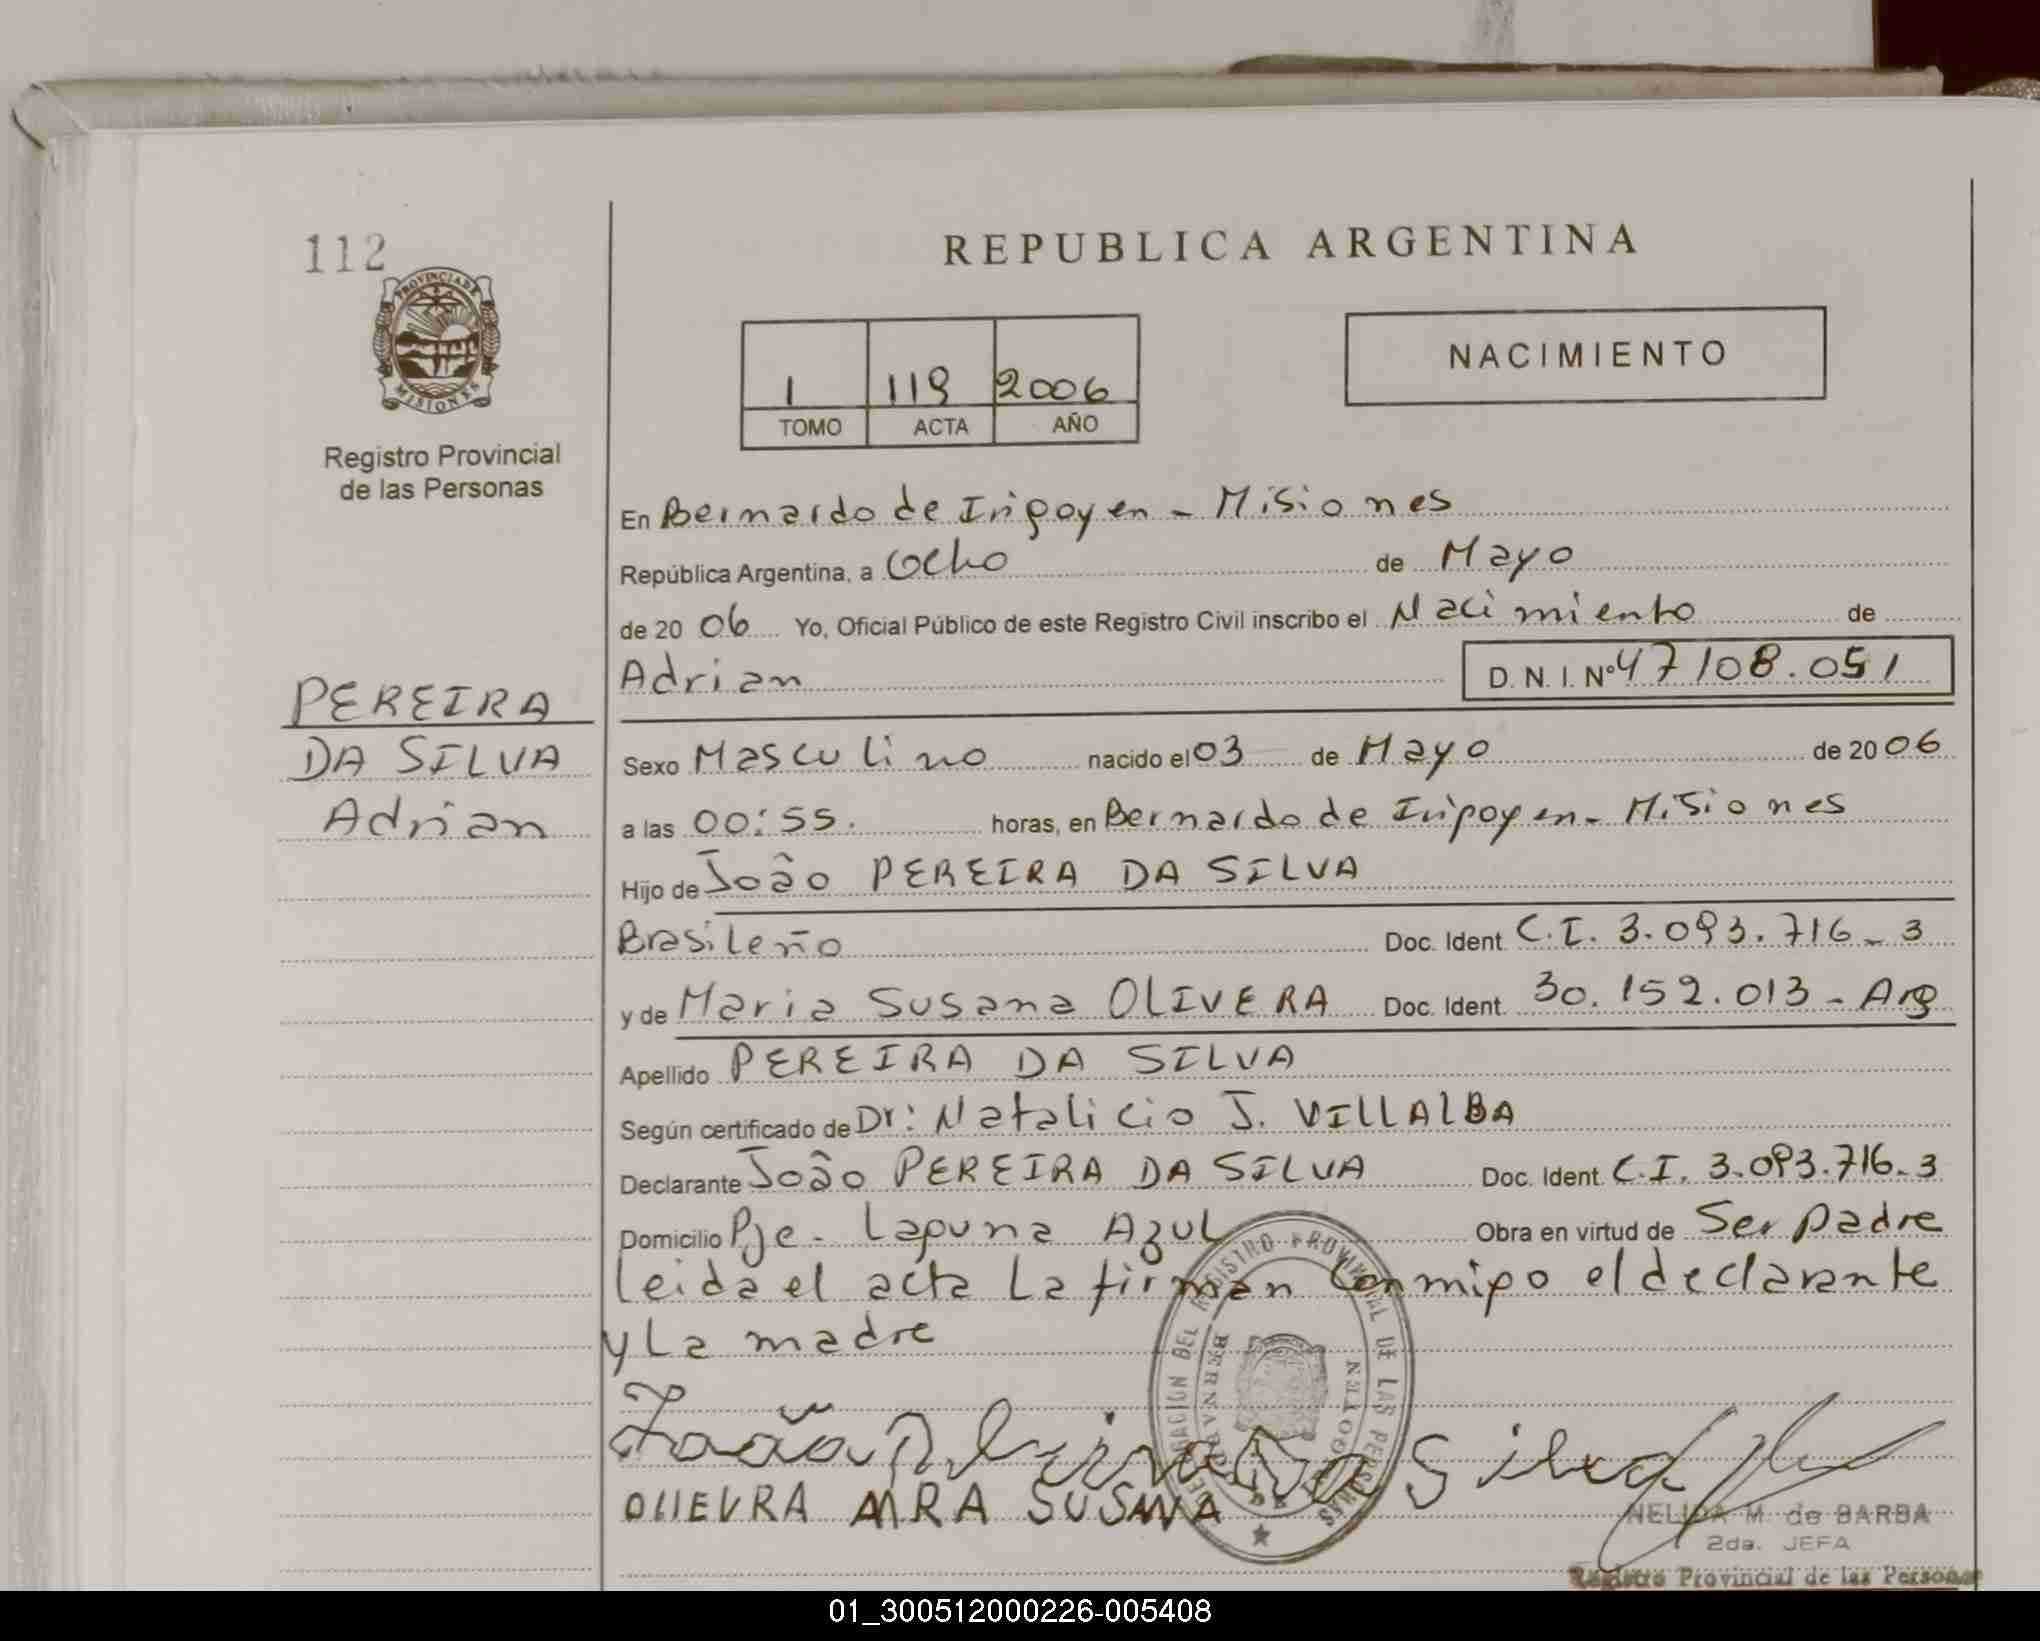 112
PROVINCIA DE
MISIONES
Registro Provincial
de las Personas
PEREIRA
DA SILVA
Adrian
REPUBLICA ARGENTINA
1 119 2006
TOMO ACTA AÑO
NACIMIENTO
En Bernardo de Irigoyen - Misiones
República Argentina, a Ocho de Mayo
de 20 06 Yo, Oficial Público de este Registro Civil inscribo el Nacimiento de
Adrian D. N. I. Nº 47108.051
Sexo Masculino nacido el 03 de Mayo de 20 06
a las 00:55. horas, en Bernardo de Irigoyen - Misiones
Hijo de João PEREIRA DA SILVA
Brasileño Doc. Ident. C.I. 3.093.716-3
y de Maria Susana OLIVERA Doc. Ident. 30.152.013 - Arg
Apellido PEREIRA DA SILVA
Según certificado de Dr: Natalicio J. VILLALBA
Declarante João PEREIRA DA SILVA Doc. Ident. C.I. 3.093.716-3
Domicilio Pje - Laguna Azul Obra en virtud de Ser padre
leida el acta La firman Conmigo el declarante
y La madre
João Da Silva
OLIEVRA MRA SUSANA
NELIDA M. de BARBA
2da. JEFA
Registro Provincial de las Personas
01_300512000226-005408